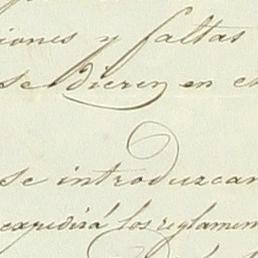 iones y faltas
se dieren en e
se introduzcan
expedirá los reglamen